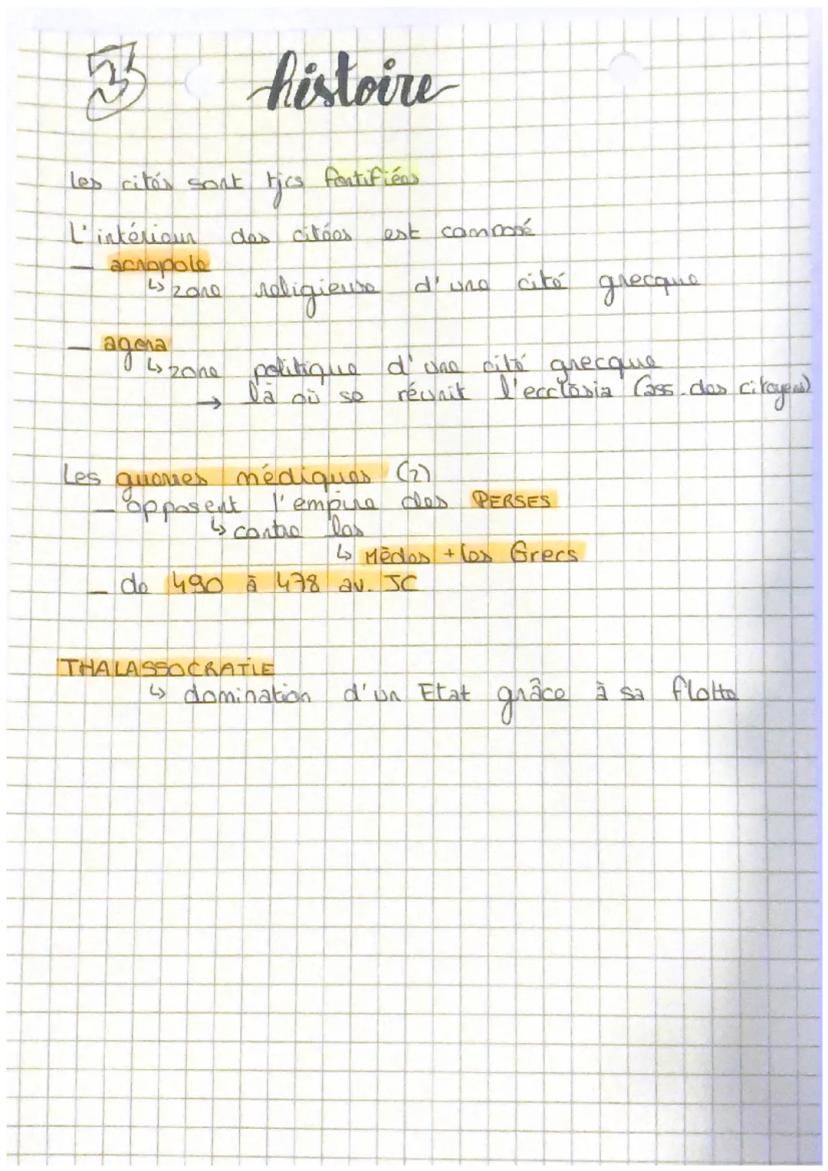 3
histoire
Les cités sont tjrs fortifiées
L'intérieur des citées est composé
— acropole
↳ zone religieuse d'une cité grecque
— agora
↳ zone politique d'une cité grecque
→ là où se réunit l'ecclésia (ass. des citoyens)
Les guerres médiques (2)
— opposent l'empire des PERSES
↳ contre les
↳ Mèdes + les Grecs
— de 490 à 478 av. JC
THALASSOCRATIE
↳ domination d'un Etat grâce à sa flotte